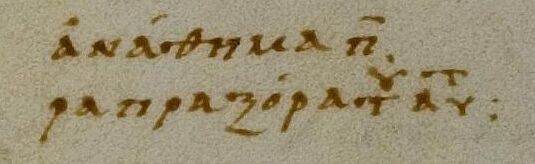 ἀνάθημα π̅.
ραπραζόρα τͮ αυτ: